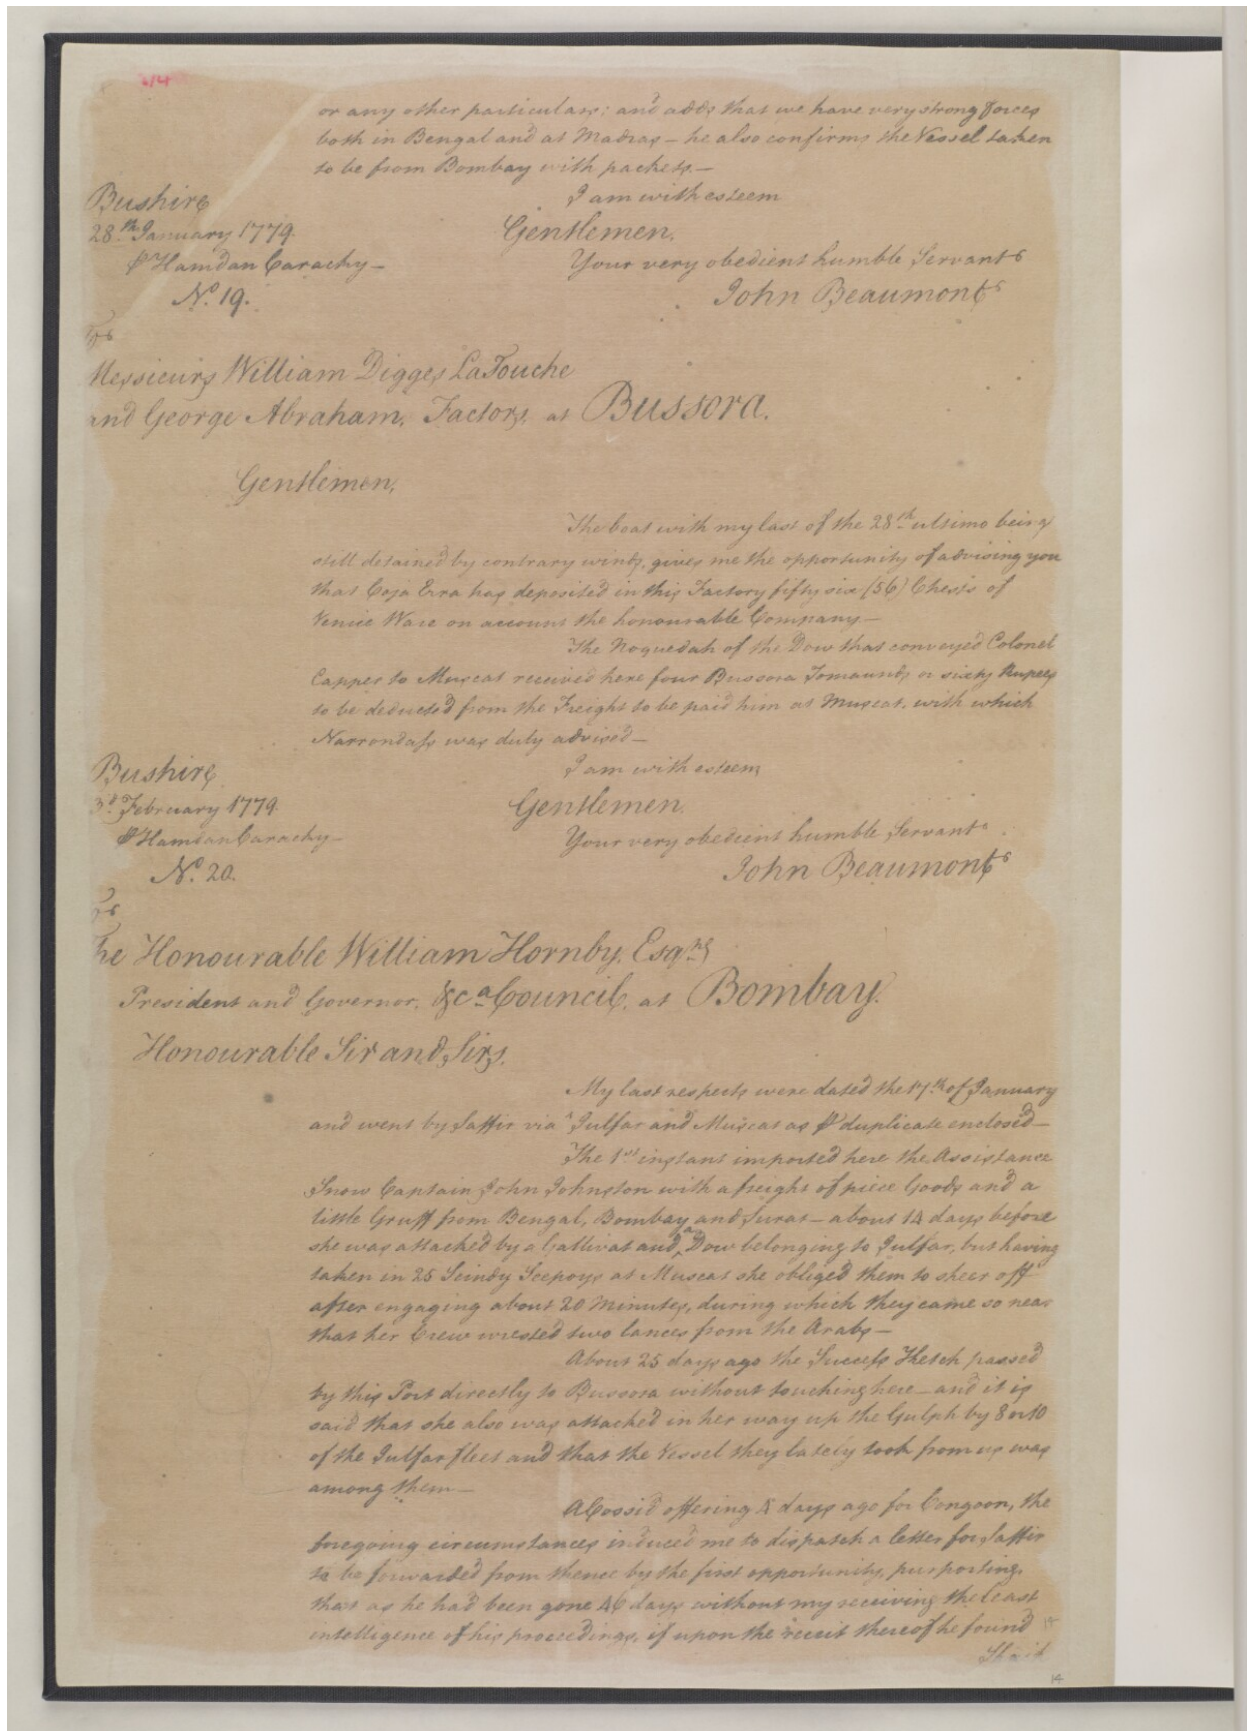 or any other particulars; and adds that we have very strong forces
both in Bengal and at Madras – he also confirms the Vessel taken
to be from Bombay with packets. –
I am with esteem
Bushire
Gentlemen.
28.th January 1779.
Your very obedient humble Servant
⅌ Hamdan Carachy –
John Beaumont
No. 19.
To
Messieurs William Digges LaTouche
and George Abraham, Factors, at Bussora.
Gentlemen,
The boat with my last of the 28th ultimo being
still detained by contrary winds, gives me the opportunity of advising you
that Coja Erra has deposited in this Factory fifty six (56) Chests of
Venice Ware on account the honourable Company –
The Noquedah of the Dow that conveyed Colonel
Capper to Muscat received here four Bussora Tomaunds or sixty Rupees
to be deducted from the Freight to be paid him at Muscat, with which
Narrondass was duly advised –
I am with esteem
Bushire
Gentlemen.
3d. February 1779.
Your very obedient humble Servant
⅌ Hamdan Carachy –
John Beaumont
No. 20.
To
The Honourable William Hornby, Esqre
President and Governor, &ca Council, at Bombay.
Honourable Sir and Sirs.
My last respects were dated the 17th of January
and went by Saffir via Julfar and Muscat as ⅌ duplicate enclosed –
The 1st instant imported here the Assistance
Snow Captain John Johnston with a freight of piece Goods and a
little Gruff from Bengal, Bombay and Surat – about 14 days before
she was attacked by a Gallivat and a Dow belonging to Julfar, but having
taken in 25 Scindy Seepoys at Muscat she obliged them to sheer off
after engaging about 20 Minutes, during which they came so near
that her Crew wrested two lances from the Arabs –
About 25 days ago the Success Ketch passed
by this Port directly to Bussora without touching here – and it is
said that she also was attacked in her way up the Gulph by 8 or 10
of the Julfar fleet and that the Vessel they lately took from us was
among them –
A Cossid offering 4 days ago for Congoon, the
foregoing circumstances induced me to dispatch a letter for Saffir
to be forwarded from thence by the first opportunity, purporting,
that as he had been gone 46 days without my receiving the least
intelligence of his proceedings, if upon the receit thereof he found
14